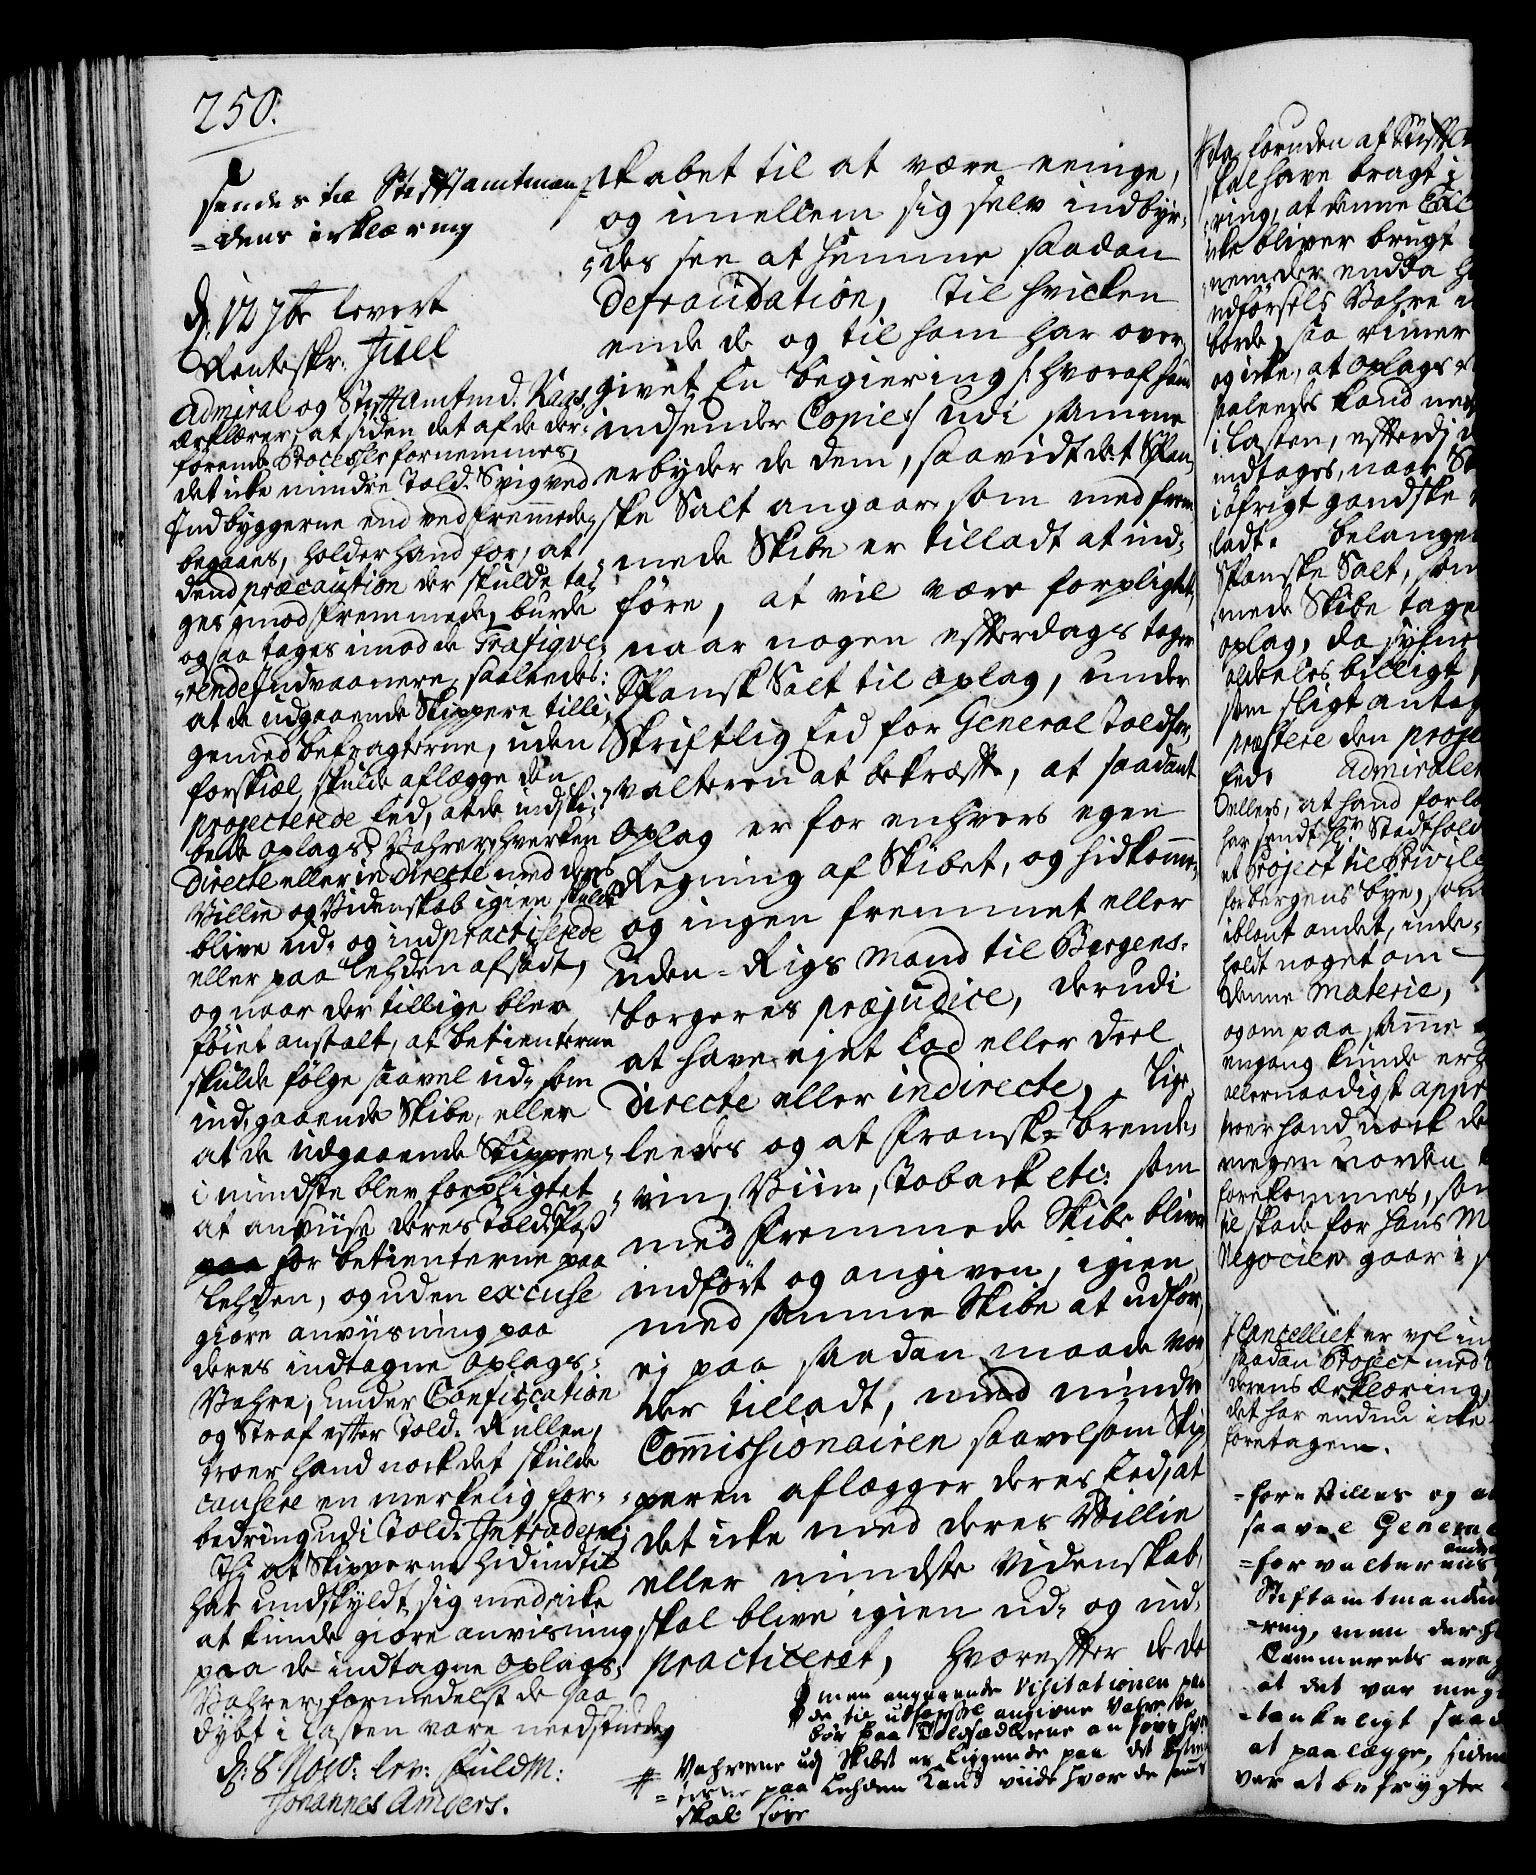 250.
sendes til Stiftamtman-
=dens erklæring
d. 12 7br levert
Renteskr. Juel
Admiral og Stiftamtmd. Kaas
Erklærer, at siden det af de der-
førende Processer fornemmes,
det icke mindre Told-Svig ved
Indbyggerne end ved fremmede
begaaes, holder hand for, at
dend præcaution der skulde ta-
ges imod fremmede, burde
ogsaa tages imod de Trafiqve-
rende Indvaanere, saaledes:
at de udgaaende Skippere tilli-
ge med befragterne, uden
forskiæl, skulde aflegge den
projecterede Eed, at de indski-
bede Oplags Vahrer, hverken
directe eller indirecte med deres
Villie og Videnskab igien skulde
blive ud- og indpractiserede
eller paa Lehden afsadt,
og naar der tillige blev
føiet anstalt, at betienterne
skulde følge saavel ud- som
ind-gaaende Skibe, eller
at de udgaaende Skippere
i mindste blev forpligtet
at anviise deres Told-Pass
for betienterne paa
Lehden, og uden excuse
giøre anviisning paa
deres indtagne Oplags-
Vahre, under Confiscation
og Straf efter Told-Rullen,
troer hand nock det skulde
causere en merkelig for-
bedring udi Told-Intraderne;
Thi at Skipperne hidindtil
har undskyldt sig med, icke
at kunde giøre anvisning
paa de indtagne Oplags-
Vahrer, formedelst de saa
dybt i Lasten vare needstuede,
d: 8 Nov: lev: Fuldm:
Johannes Anders.
skabet til at være eenige,
og imellem sig selv indbyr-
des see at hemme saadan
Defraudation, til hvilken
ende de og til ham har over-
givet En begiering /: hvoraf hand
indsender Copie :/ udi samme
erbyder de dem, saavidt det Span-
ske Salt angaar, som med frem-
mede Skibe er tilladt at ind-
føre, at vil være forpligtet,
naar nogen efterdags tager
Spansk Salt til oplag, under
Skriftlig Eed for General Toldfor-
valteren at bekræfte, at saadant
Oplag er for enhvers egen
Regning af Skibet, og hidkommen,
og ingen fremmet eller
uden-Rigs Mand til Bergens-
borgeres præjudice, derudi
at have ejet lod eller deel
directe eller indirecte, Lige-
leedes og at Fransk Brende-
vin, Viin, Toback etc: som
med Fremmede Skibe bliver
indført og angiven, igien
med samme Skibe at udføre,
ej paa saadan maade vor-
der tilladt, med mindre
Commissionairen saavelsom Skip-
peren aflægger deres Eed, at
det icke med deres Villie
eller mindste Videnskab,
skal blive igien ud- og ind-
practiceret, hvorefter de de
men angaaende Visitationen paa
de til udførsel angivne Vahre
bør paa Toldsædlerne anføres hvor
Vahrene udj Skibet er liggende paa det betien-
terne paa Lehden kand viide hvor de samme
skal søge
foruden af Stift
skal have bragt i
ring, at denne
icke bliver brugt
nem der endda
udførsels Vahre
borde, saa
og icke, at Oplags
saaleedes kand
i Lasten, efterdj
indtages, naar
iøfrigt gandske
ladt. Belangende
Spanske Salt, som
mede Skibe tage
oplag, da synes
aldeeles billigt,
som sligt antag
præstere den proje
Eed. Admiralen
ellers, at hand forl
har sendt Hr Stadthold
et Project til Privile
for Bergens bye, som
iblant andet, inde-
holdt noget om
denne Materie,
og om paa samme
engang kunde erh
allernaadigst appr
troer hand nock de
meget uorden
forekommes, som
til skade for hans M
Negocien gaar i
Cancelliet er vel in
saadan Project med
derens Erklæring,
det har endnu icke
foretagen.
=forestilles og
saavel General
=forvalterens
Stiftamtmandens
=ring, men derh
Cammerets
at det var meg
=tænkeligt saad
at paalægge, siden
var at befrygte